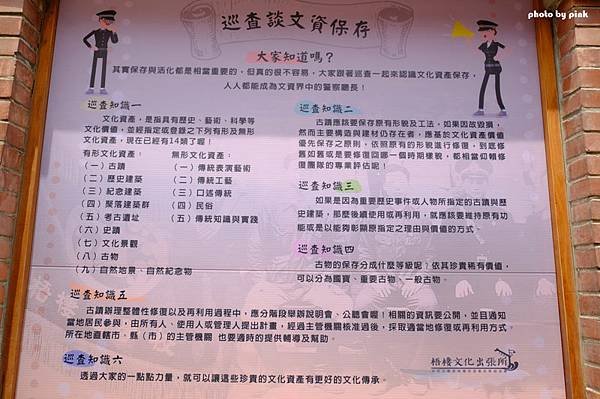 photo by pink
巡查談文資保存
大家知道嗎？
其實保存與活化都是相當重要的，但真的很不容易，大家跟著巡查一起來認識文化資產保存，
人人都能成為文資界中的警察廳長！
巡查知識一
文化資產，是指具有歷史、藝術、科學等
文化價值，並經指定或登錄之下列有形及無形
文化資產，現在已經有14類了喔！
有形文化資產： 無形文化資產：
（一）古蹟 （一）傳統表演藝術
（二）歷史建築 （二）傳統工藝
（三）紀念建築 （三）口述傳統
（四）聚落建築群 （四）民俗
（五）考古遺址 （五）傳統知識與實踐
（六）史蹟
（七）文化景觀
（八）古物
（九）自然地景、自然紀念物
巡查知識二
古蹟應該要保存原有形貌及工法，如果因故毀損，
然而主要構造與建材仍存在者，應基於文化資產價值
優先保存之原則，依照原有的形貌進行修復，到底修
舊如舊或是要修復回哪一個時期樣貌，都相當仰賴修
復團隊的專業評估呢！
巡查知識三
如果是因為重要歷史事件或人物所指定的古蹟與歷
史建築，那麼後續使用或再利用，就應該要維持原有功
能或是以能夠彰顯原指定之理由與價值的方式。
巡查知識四
古物的保存分成什麼等級呢？依其珍貴稀有價值，
可以分為國寶、重要古物、一般古物。
巡查知識五
古蹟辦理整體性修復以及再利用過程中，應分階段舉辦說明會、公聽會喔！相關的資訊要公開，並且通知
當地居民參與，由所有人、使用人或管理人提出計畫，經過主管機關核准過後，採取適當地修復或再利用方式。
所在地直轄市、縣（市）的主管機關 也要適時的提供輔導及幫助。
巡查知識六
透過大家的一點點力量，就可以讓這些珍貴的文化資產有更好的文化傳承。
梧棲文化出張所